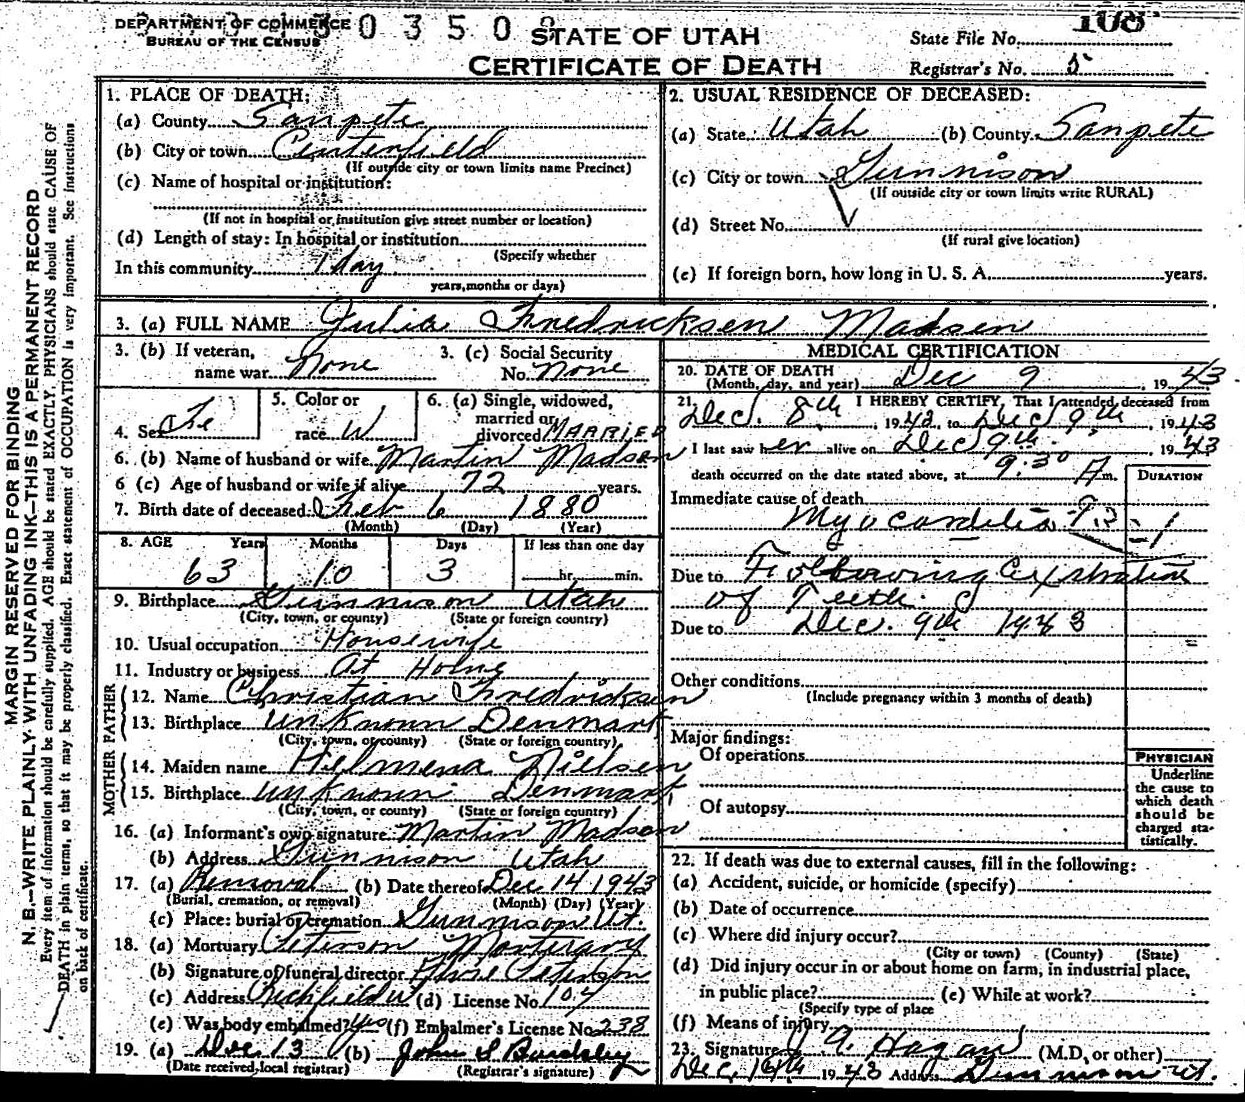 DEPARTMENT OF COMMERCE
BUREAU OF THE CENSUS
3 0 3 5 0
STATE OF UTAH
CERTIFICATE OF DEATH
State File No. 108
Registrar's No. 5
MARGIN RESERVED FOR BINDING
N. B.—WRITE PLAINLY WITH UNFADING INK—THIS IS A PERMANENT RECORD
Every item of information should be carefully supplied. AGE should be stated EXACTLY. PHYSICIANS should state CAUSE OF
DEATH in plain terms, so that it may be properly classified. Exact statement of OCCUPATION is very important. See Instructions
on back of certificate.
1. PLACE OF DEATH:
(a) County Sanpete
(b) City or town Centerfield
(If outside city or town limits name Precinct)
(c) Name of hospital or institution:
(If not in hospital or institution give street number or location)
(d) Length of stay: In hospital or institution
(Specify whether
In this community 1 day
years, months or days)
2. USUAL RESIDENCE OF DECEASED:
(a) State Utah (b) County Sanpete
(c) City or town Gunnison
(If outside city or town limits write RURAL)
(d) Street No.
(If rural give location)
(e) If foreign born, how long in U. S. A. years.
3. (a) FULL NAME Julia Fredricksen Madsen
3. (b) If veteran, name war None
3. (c) Social Security No. None
4. Sex Fe
5. Color or race W
6. (a) Single, widowed, married or divorced MARRIED
6. (b) Name of husband or wife Martin Madsen
6 (c) Age of husband or wife if alive 72 years.
7. Birth date of deceased Feb 6 1880
(Month) (Day) (Year)
8. AGE Years Months Days If less than one day
63 10 3 hr. min.
9. Birthplace Gunnison Utah
(City, town, or county) (State or foreign country)
10. Usual occupation Housewife
11. Industry or business At Home
FATHER
12. Name Christian Fredricksen
13. Birthplace unknown Denmark
(City, town, or county) (State or foreign country)
MOTHER
14. Maiden name Helmena Nielsen
15. Birthplace unknown Denmark
(City, town, or county) (State or foreign country)
16. (a) Informant's own signature Martin Madsen
(b) Address Gunnison Utah
17. (a) Removal (b) Date thereof Dec 14 1943
(Burial, cremation, or removal) (Month) (Day) (Year)
(c) Place: burial or cremation Gunnison Ut.
18. (a) Mortuary Peterson Mortuary
(b) Signature of funeral director Peterson
(c) Address Richfield U (d) License No. 107
(e) Was body embalmed? Yes (f) Embalmer's License No 238
19. (a) Dec. 13 (b) John S Bardsley
(Date received local registrar) (Registrar's signature)
MEDICAL CERTIFICATION
20. DATE OF DEATH
(Month, day, and year) Dec 9, 1943
21. I HEREBY CERTIFY, That I attended deceased from
Dec. 8th, 1943 to Dec 9th, 1943
I last saw her alive on Dec 9th, 1943
death occurred on the date stated above, at 9:30 A m.
DURATION
Immediate cause of death
Due to Following Extraction
of Teeth.
Due to Dec. 9th 1943
Other conditions
(Include pregnancy within 3 months of death)
Major findings:
Of operations
Of autopsy
PHYSICIAN
Underline
the cause to
which death
should be
charged sta-
tistically.
22. If death was due to external causes, fill in the following:
(a) Accident, suicide, or homicide (specify)
(b) Date of occurrence
(c) Where did injury occur?
(City or town) (County) (State)
(d) Did injury occur in or about home on farm, in industrial place,
in public place? (e) While at work?
(Specify type of place
(f) Means of injury
23. Signature Hagan (M.D. or other)
Dec. 1943 Address Gunnison Ut.